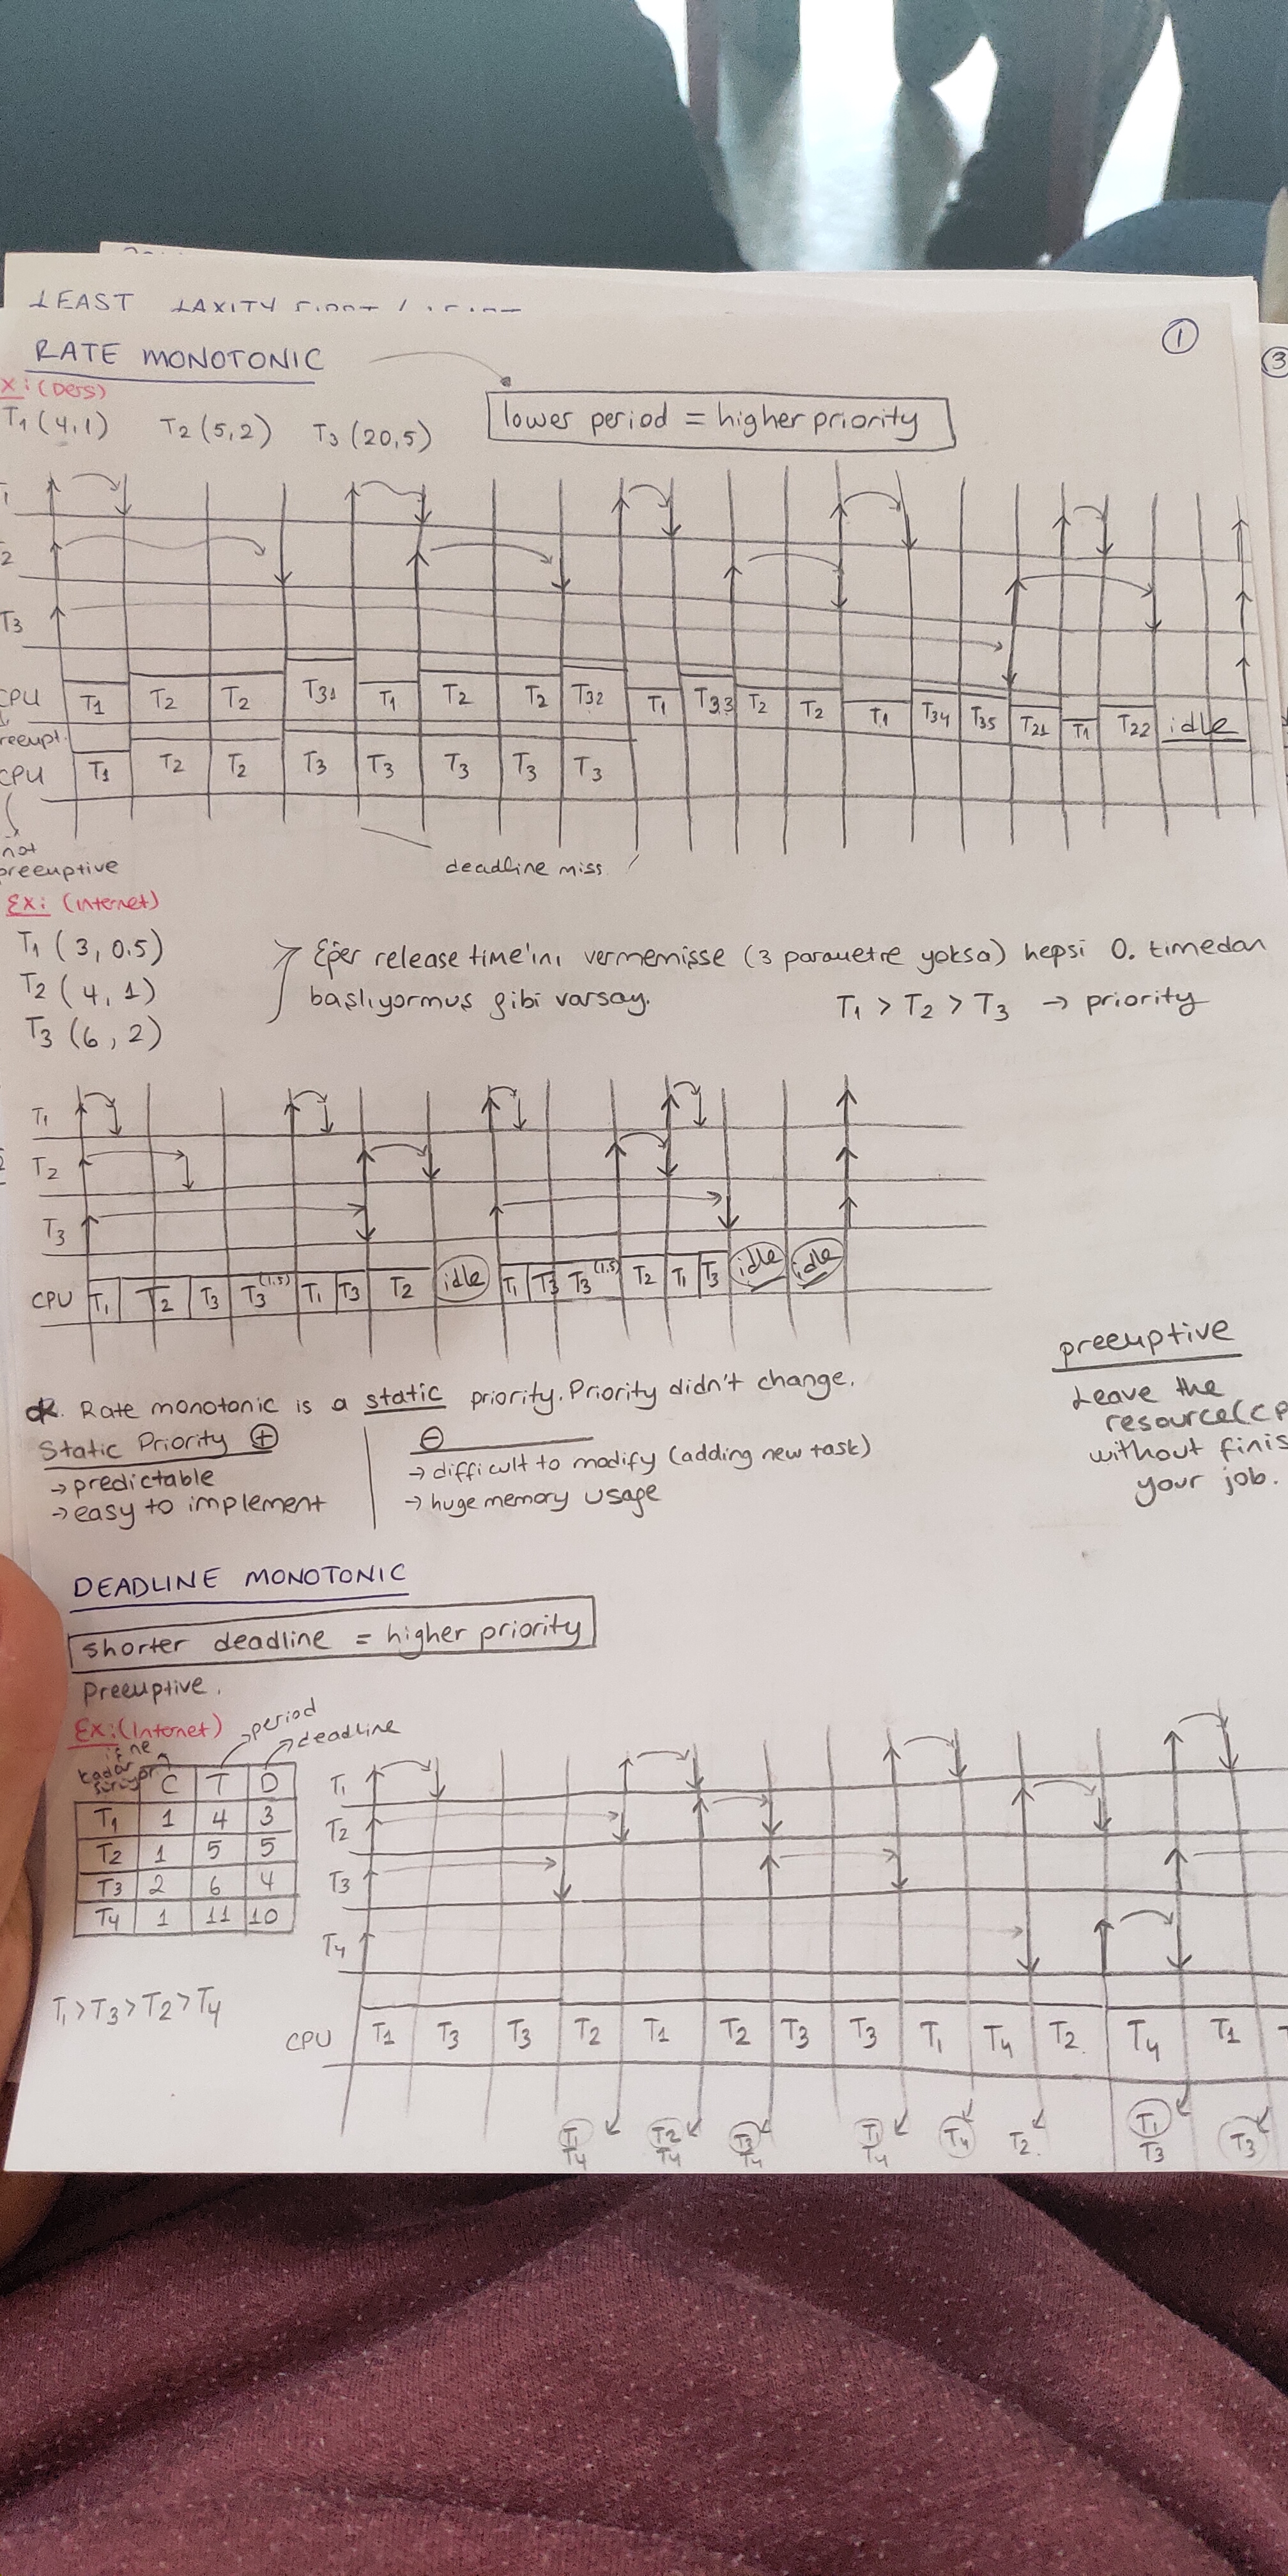 LEAST LAXITY
RATE MONOTONIC
①
③
x: (Ders)
T1 (4,1) T2 (5,2) T3 (20,5)
lower period = higher priority
T2
T3
CPU T1 T2 T2 T31 T1 T2 T2 T32 T1 T33 T2 T2 T1 T34 T35 T21 T1 T22 idle
reeupt.
CPU T1 T2 T2 T3 T3 T3 T3 T3
not
preeuptive
deadline miss
Ex: (Internet)
T1 (3, 0.5)
T2 (4, 1)
T3 (6, 2)
Eğer release time'ını vermemisse (3 parametre yoksa) hepsi 0. timedan
baslıyormus gibi varsay.
T1 > T2 > T3 → priority
T1
T2
T3
CPU T1 T2 T3 T3 (1,5) T1 T3 T2 idle T1 T3 T3 (1,5) T2 T1 T3 idle idle
Rate monotonic is a static priority. Priority didn't change.
Static Priority ⊕
→ predictable
→ easy to implement
⊖
→ difficult to modify (adding new task)
→ huge memory usage
preeuptive
Leave the
resource(CP
without finis
your job.
DEADLINE MONOTONIC
shorter deadline = higher priority
Preeuptive.
Ex: (Internet)
period
deadline
iş ne
kadar
sürüyor
C T D
T1 1 4 3
T2 1 5 5
T3 2 6 4
T4 1 11 10
T1 > T3 > T2 > T4
T1
T2
T3
T4
CPU T1 T3 T3 T2 T1 T2 T3 T3 T1 T4 T2 T4 T1
T1 T2 T3 T1 T4 T2 T1 T3
T4 T4 T4 T4 T3